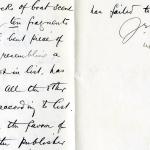 of boat scene
ten fragments
bent piece of
resembling a
list, has
all the other
according to list.
the favour of
publisher
has failed to